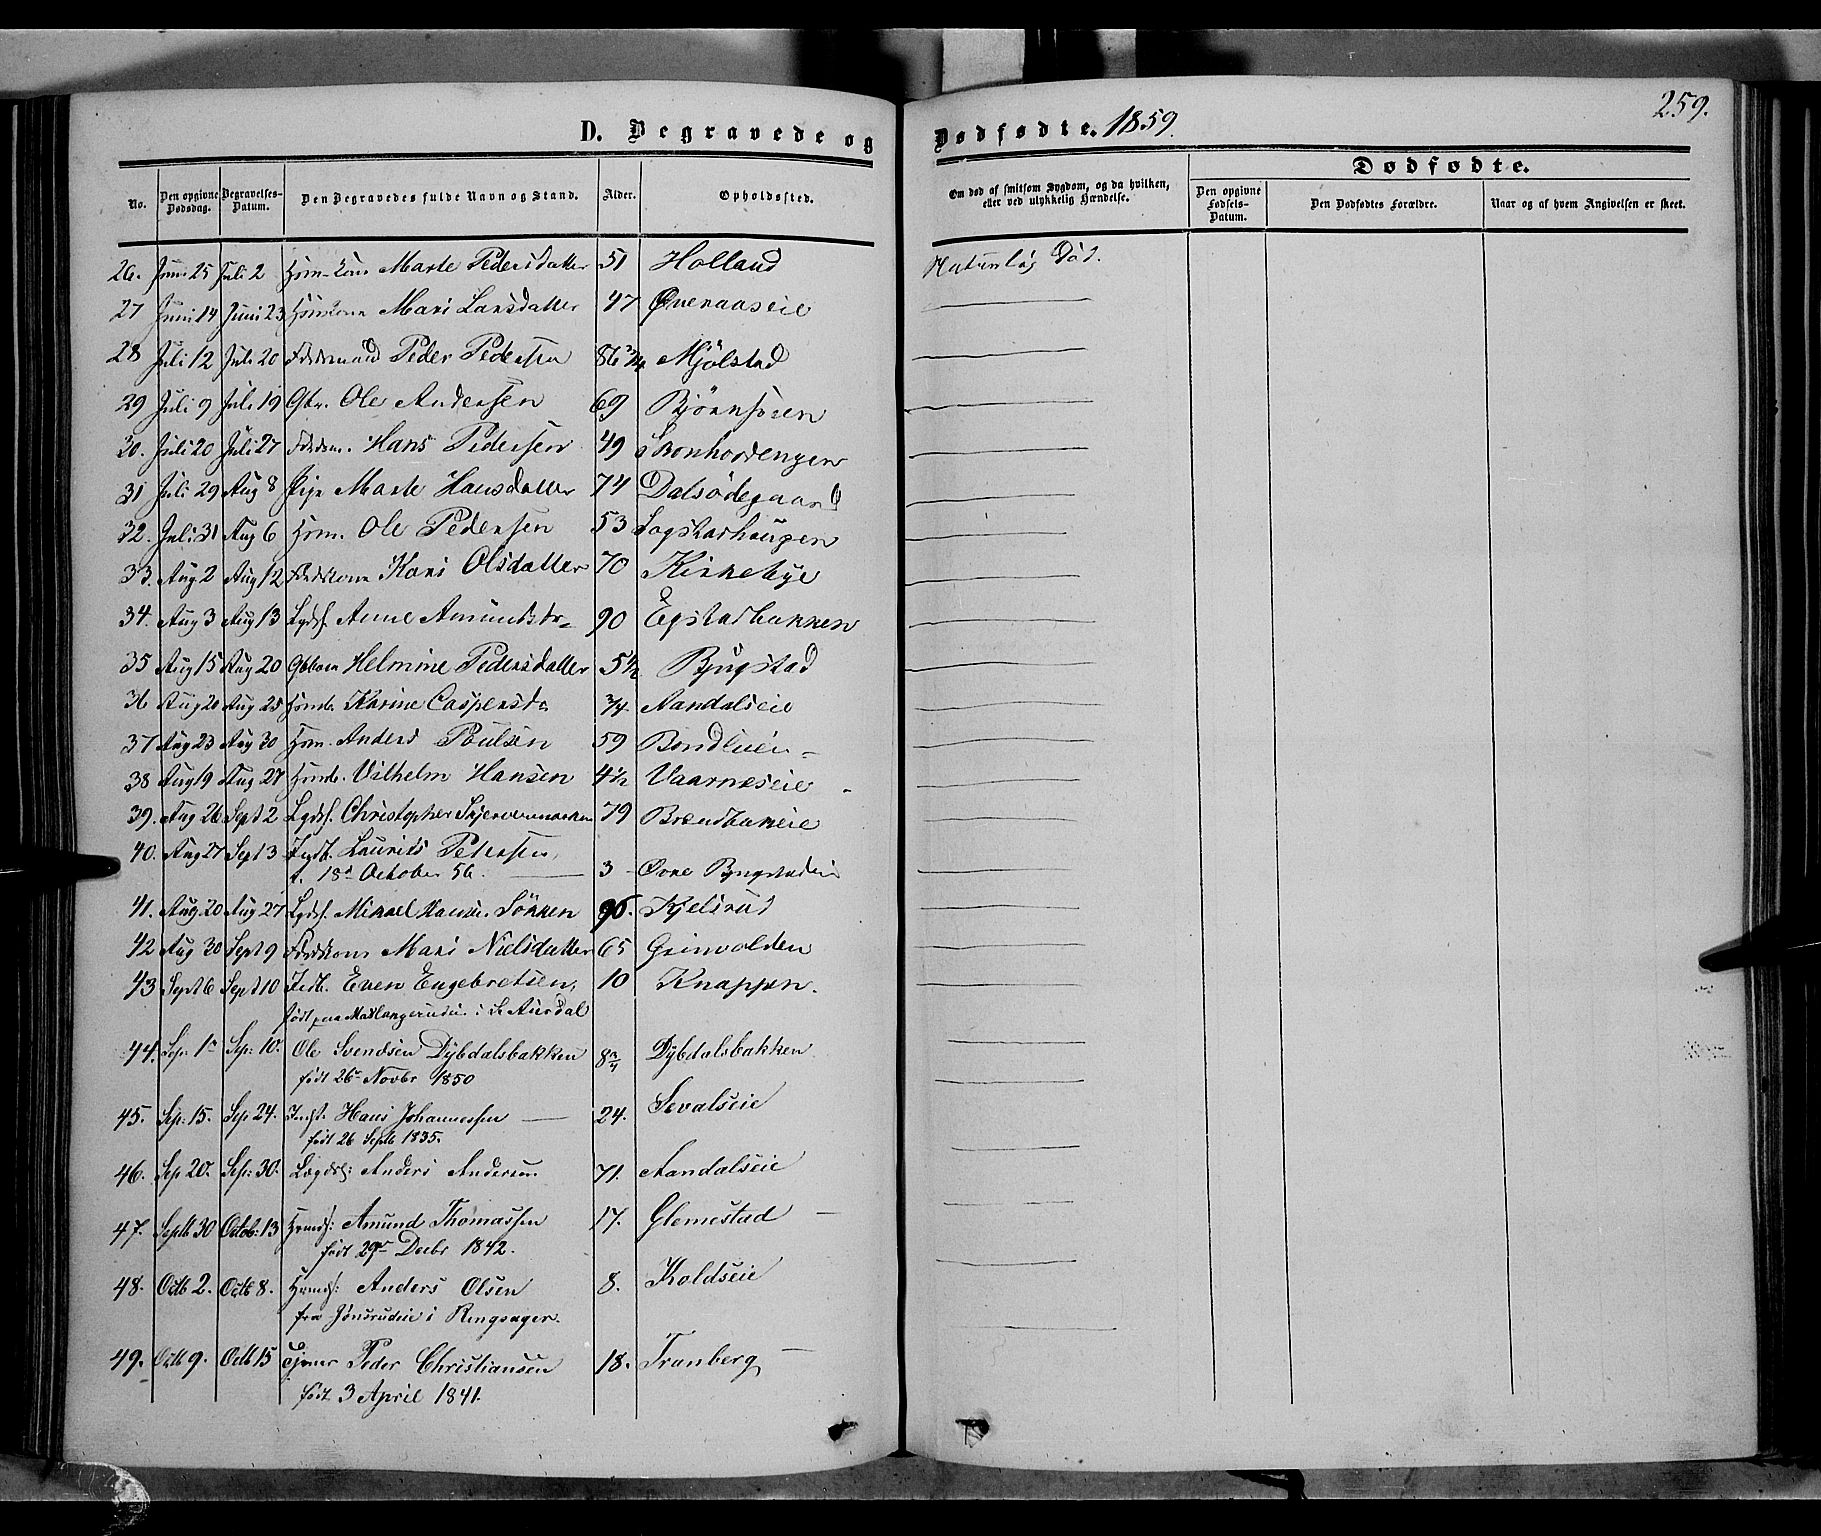 259.
D. Begravede og Dødfødte. 1859.
No. Den opgivne Dødsdag. Begravelses-Datum. Den Begravedes fulde Navn og Stand. Alder. Opholdssted. Om død af smitsom Sygdom, og da hvilken, eller ved ulykkelig Hændelse. Dødfødte. Den opgivne Fødsels-Datum. Den Dødfødtes Forældre. Naar og af hvem Angivelsen er skeet.
26. Juni 25 Juli 2 Marte Pedersdatter 51 Holland Naturlig Død.
27 Juni 14 Juni 23 Mari Larsdatter 47
28 Juli 12 Juli 20 Peder Pedersen 86 3/4 Mjölstad
29 Juli 9 Juli 19 Gbr. Ole Andersen 69
30. Juli 20 Juli 27 Hans Pedersen 49
31 Juli 29 Aug 8 Pige Marte Hansdatter 74 Dalsödegaard
32. Juli 31 Aug 6 Hsm. Ole Pedersen 53
33. Aug 2 Aug 12 Kari Olsdatter 70 Kirkebye
34. Aug 3 Aug 13 Lgdsl. Anne Amundsdr 90 Egstadbakken
35 Aug 15 Aug 20 Helmine Pedersdatter 5 1/2 Bjugstad
36 Aug 20 Aug 25 Hsmb. Karine Caspersdr 3/4 Aandalseie
37 Aug 23 Aug 30 Hsm. Anders Poulsen 59 Bondlien
38 Aug 19 Aug 27 Hsmb. Vilhelm Hansen 4 1/2 Vaarneseie
39. Aug 26 Sept 2 Lgdsl. Christopher 79
40. Aug 27 Sept 3 Indb. Laurits Petersen,
f. 18d October 56. 3 Øvre
41. Aug 20 Aug 27 Lgdsl. Mikael Hansen 96. Kjelsrud
42 Aug 30 Sept 9 Mari Nielsdatter 65 Grinvolden
43 Sept 6 Sept 10 Indb. Even Engebretsen, 10 Knappen.
født paa i S. Aurdal
44. Sep. 1n Sep: 10n Ole Svendsen Dybdalsbakken 8 3/4 Dybdalsbakken
født 26n Novbr 1850
45. Sep: 15. Sep 24. Indst. Hans Johannessen 24. Sevalseie
født 26 Septb 1835.
46. Sep 20n Sep: 30. Lægdsl: Anders Andersen 71. Aandalseie
47. Septb 30 Octob: 13 Amund Thomassen 17. Glemestad
født 29n Decbr 1842.
48. Octb 2. Octb 8. Anders Olsen 8. Koldseie
fra Jönsrudeie i Ringsager.
49. Octb 9. Octb 15 Tjener Peder Christiansen 18. Tranberg
født 3 April 1841.